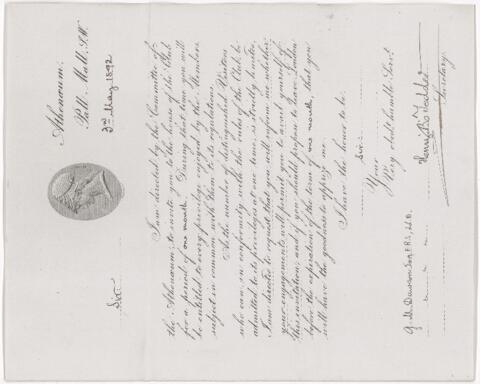 Athenæum.
Pall Mall, S.W.
3rd May 1892
Sir
I am directed by the Committee of
the Athenæum, to invite you to the house of the Club
for a period of one month. During that time you will
be entitled to every privilege enjoyed by the Members
subject in common with them to its regulations.
As the number of distinguished Visitors
who can, in conformity with the rules of the Club be
admitted to its privileges at one time, is strictly limited,
I am directed to request that you will inform me whether
your engagements will permit you to avail yourself of
this invitation, and if you should propose to leave London
before the expiration of the term of one month, that you
will have the goodness to apprize me.
I have the honor to be,
Sir,
Your
Very obedt. humble Servt.
Henry R. Tedder
Secretary.
G. M. Dawson Esq. F.R.S., LL.D.